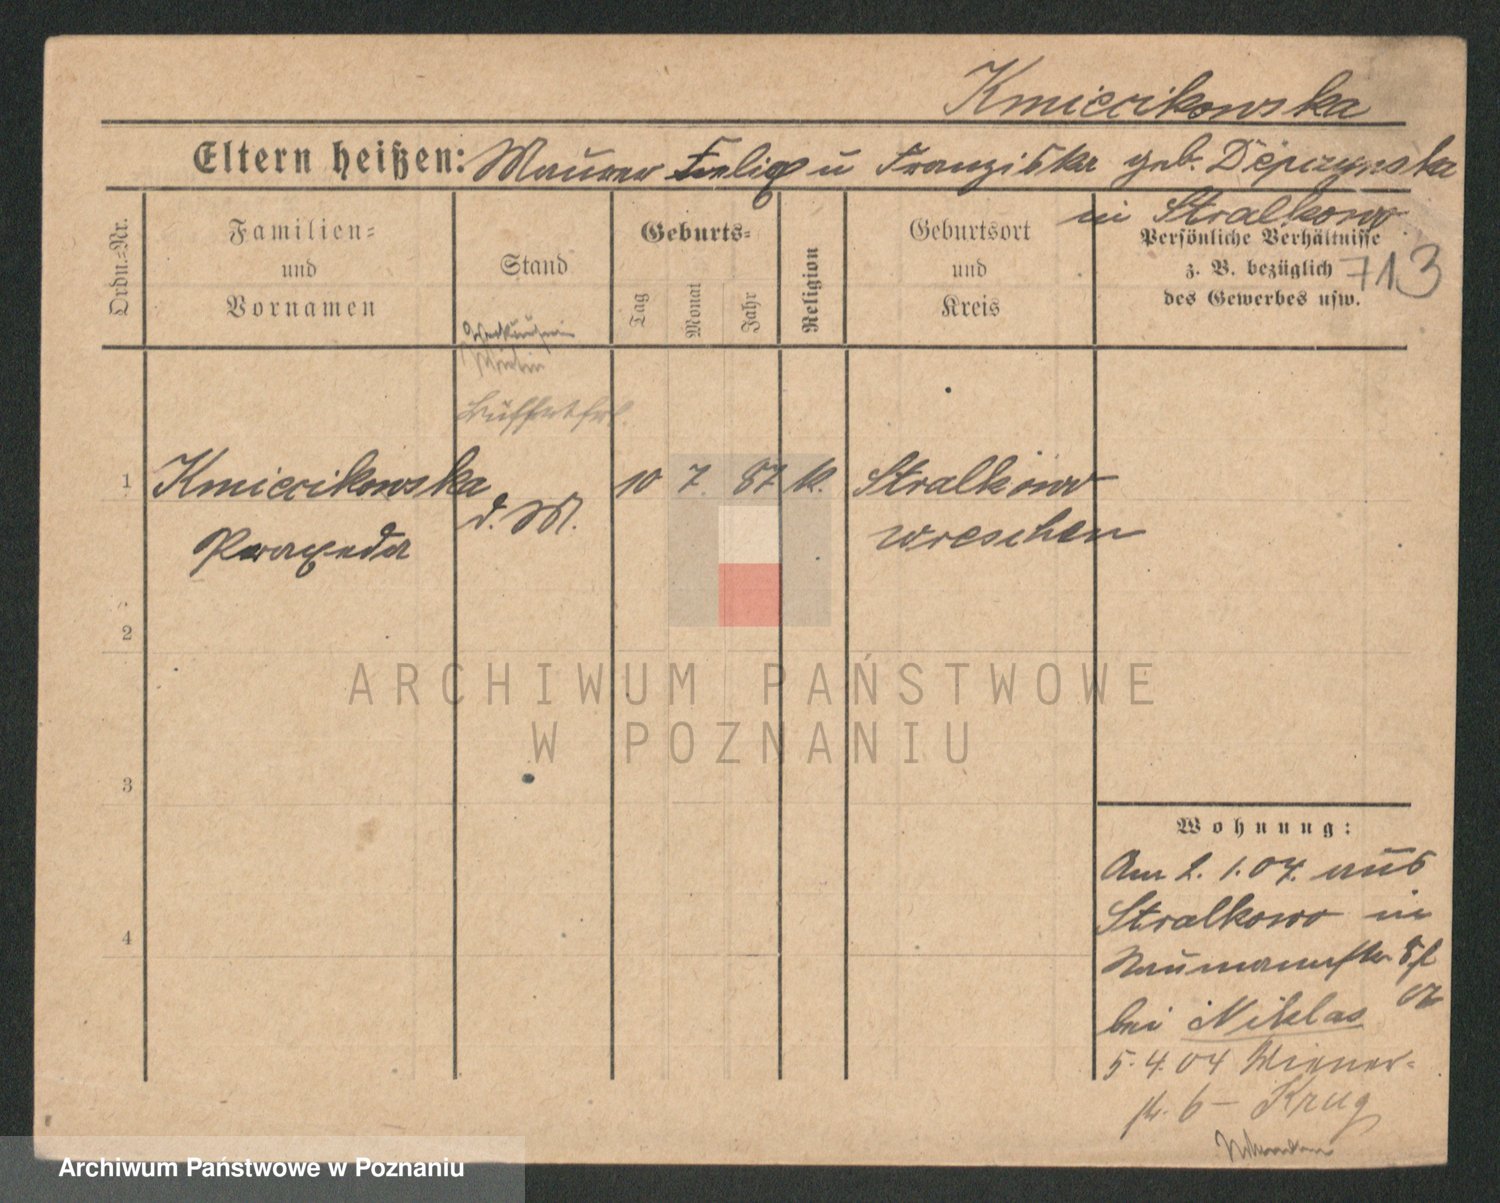 Kmiecikowska
Eltern heißen: Maurer Felix u Franziska geb. Depczynska
in Stralkowo
Ordn.-Nr.
Familien- und Vornamen
Stand
Geburts-
Tag
Monat
Jahr
Religion
Geburtsort und Kreis
Persönliche Verhältnisse
z. B. bezüglich
des Gewerbes usw.
713
Verkäuferin
Büffettfrl.
1 Kmiecikowska d. M. 10 7. 87 k. Stralkowo
Praxeda Wreschen
2
3
4
Wohnung:
Am 2. 1. 04. aus
Stralkowo in
Naumannstr
bei Niklas
5. 4. 04 Wiener-
str. 6 – Krug
ARCHIWUM PAŃSTWOWE
W POZNANIU
Archiwum Państwowe w Poznaniu